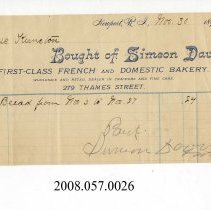 Newport, R. I., Nov. 30 18
Bought of Simeon Dav
FIRST-CLASS FRENCH AND DOMESTIC BAKERY
WHOLESALE AND RETAIL DEALER IN CRACKERS AND FINE CAKE.
279 THAMES STREET.
Bread from Nov
Paid
Simeon
2008.057.0026